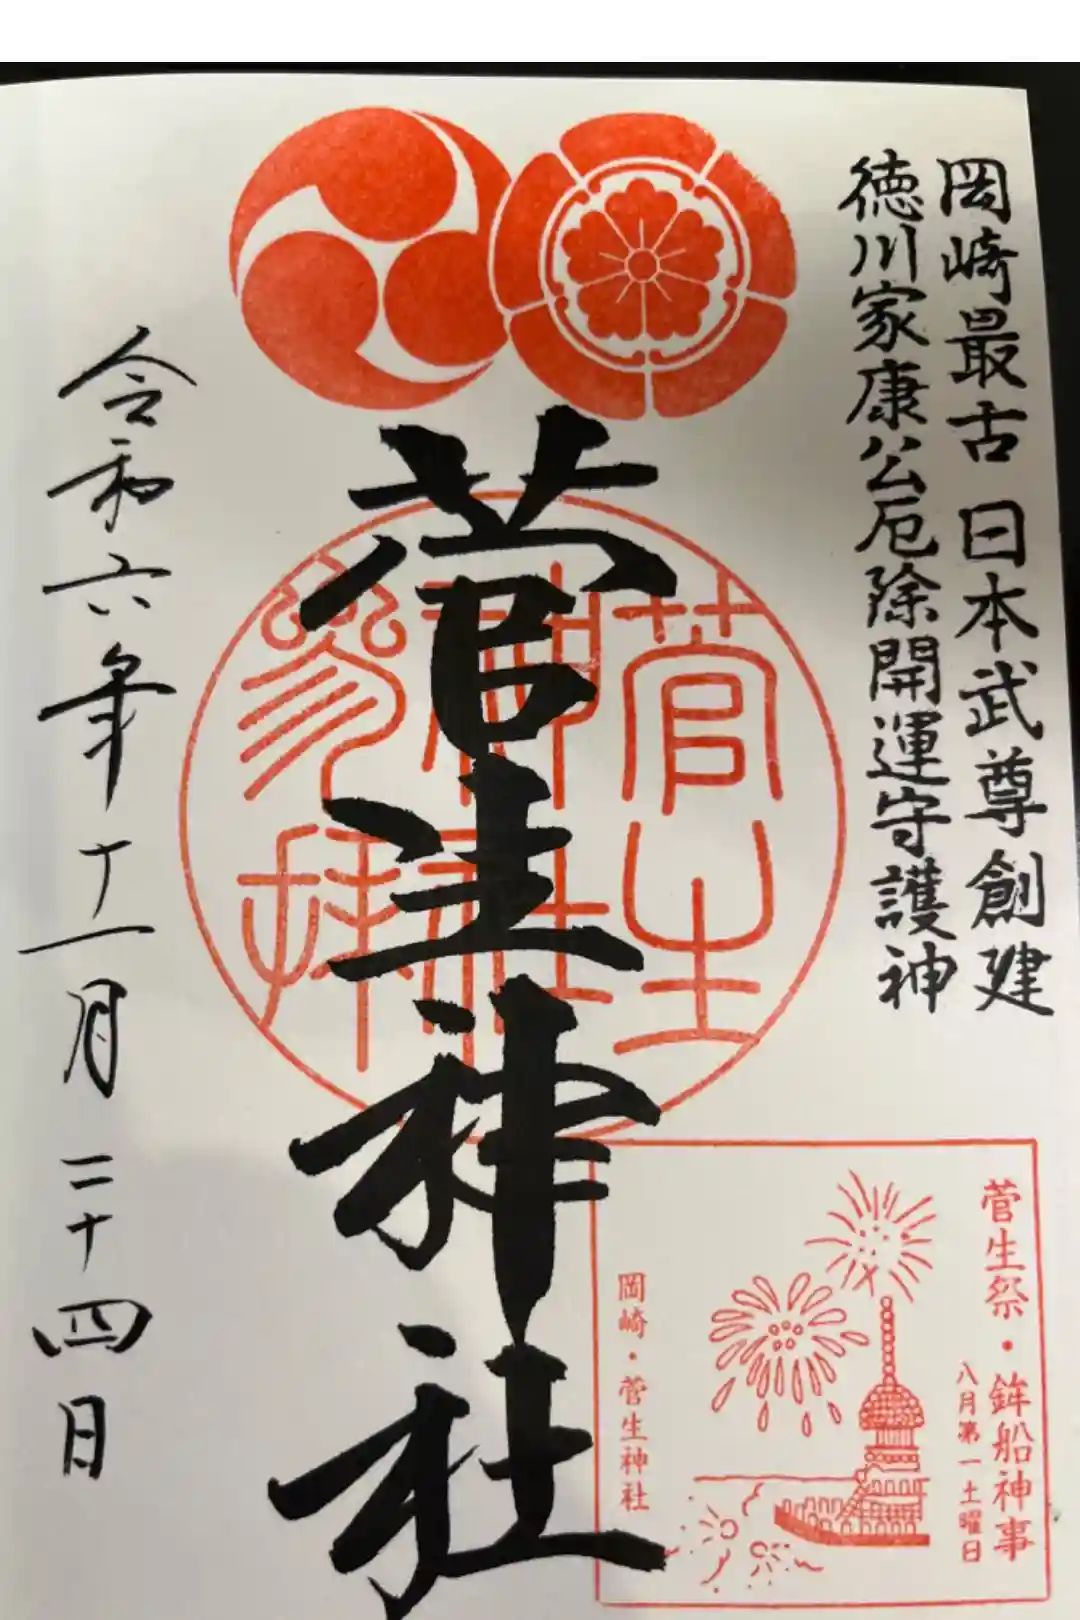 岡崎最古 日本武尊創建
徳川家康公厄除開運守護神
菅生神社
菅生
神社
参拝
令和六年十一月二十四日
菅生祭・鉾船神事
八月第一土曜日
岡崎・菅生神社